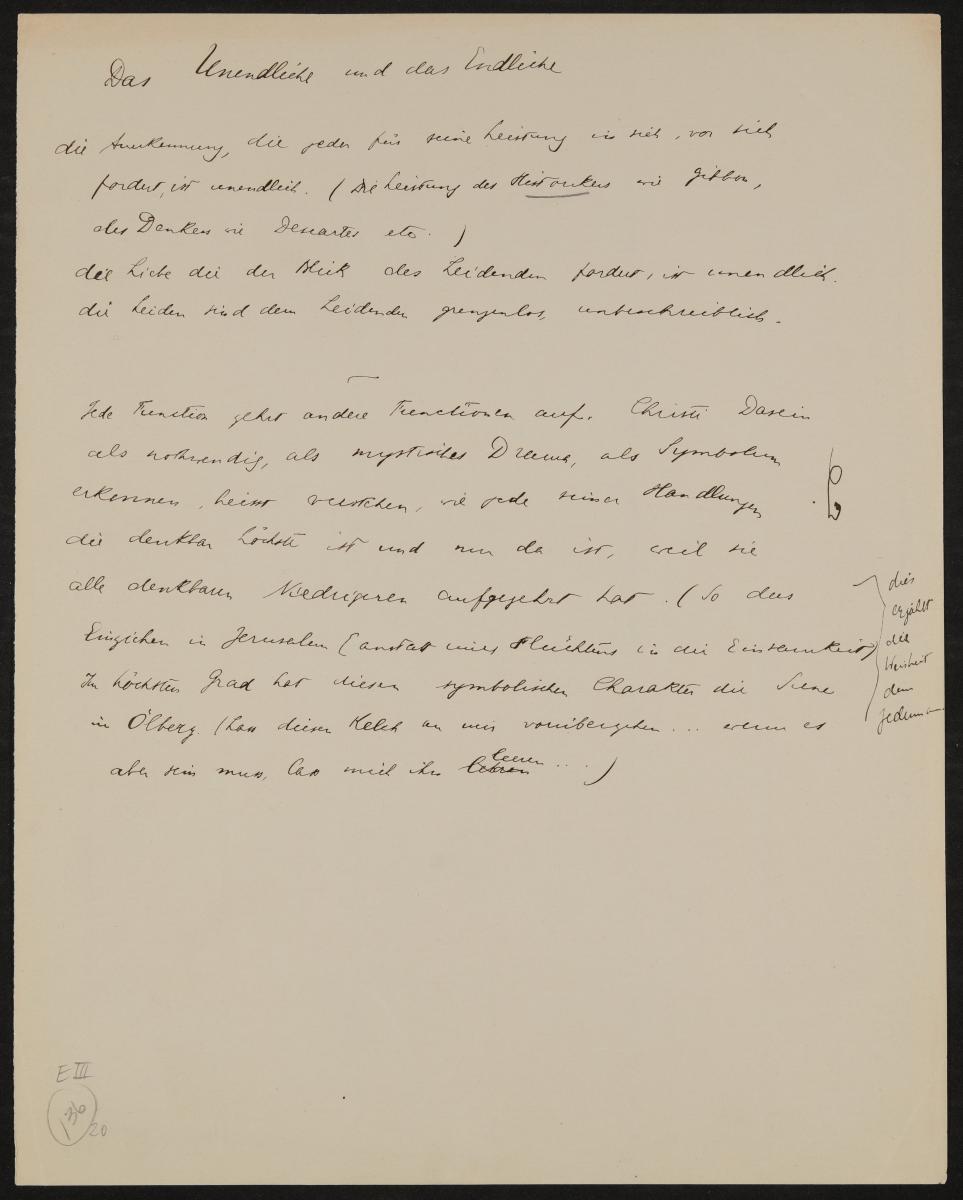 Das Unendliche und das Endliche
die Anerkennung, die jeder für seine Leistung in sich, vor sich
fordert, ist unendlich. (Die Leistung des Historikers wie Gibbon,
des Denkers wie Descartes etc.)
die Liebe die der Blick des Leidenden fordert, ist unendlich.
die Leiden sind dem Leidenden grenzenlos, unbeschreiblich.
Jede Function zehrt andere Functionen auf. Christi Dasein
als nothwendig, als mystisches Drama, als Symbolum
erkennen, heisst verstehen, wie jede seiner Handlungen
die denkbar höchste ist und nur da ist, weil sie
alle denkbaren Niedrigeren aufgezehrt hat. (So das
Einziehen in Jerusalem (anstatt eines Flüchtens in die Einsamkeit)
Im höchsten Grad hat diesen symbolischen Charakter die Scene
in Ölberg. (Lass diesen Kelch an mir vorübergehen... wenn es
aber sein muss, lass mich ihn leeren ...)
dies
erzählt
die
Weisheit
dem
Jederman
E III
136
20